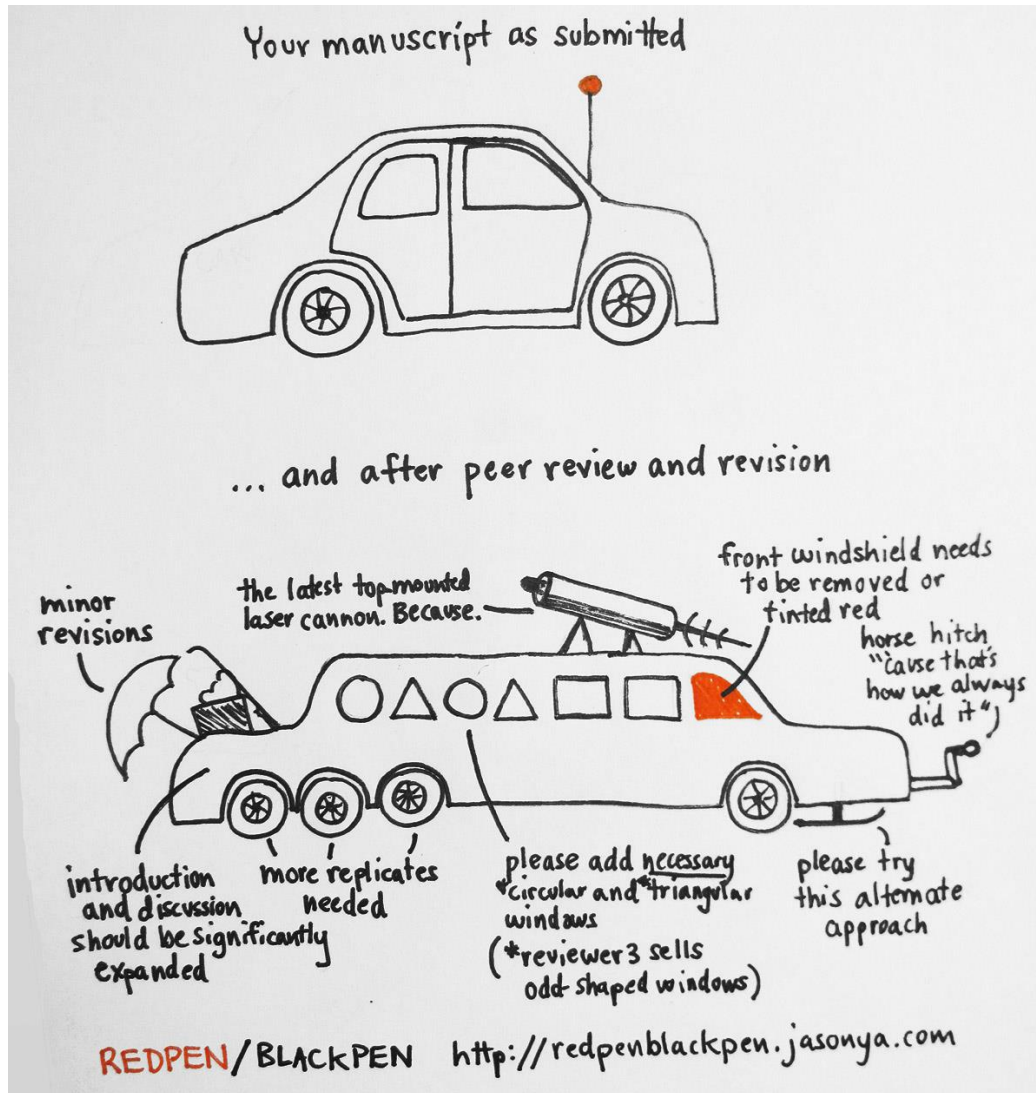 Your manuscript as submitted
... and after peer review and revision
minor
revisions
the latest top-mounted
laser cannon. Because.
front windshield needs
to be removed or
tinted red
horse hitch
"'cause that's
how we always
did it")
introduction
and discussion
should be significantly
expanded
more replicates
needed
please add necessary
*circular and *triangular
windows
(*reviewer 3 sells
odd-shaped windows)
please try
this alternate
approach
REDPEN/BLACKPEN http://redpenblackpen.jasonya.com